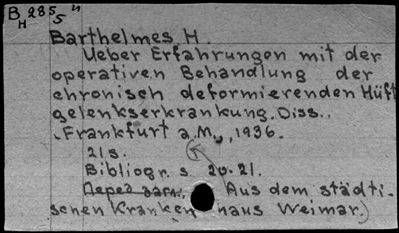 B 285 4
H 5
Barthelmes H.
Ueber Erfahrungen mit der
operativen Behandlung der
chronisch deformierenden Hüft
gelenkserkrankung. Diss..
Frankfurt a. M., 1936.
21 s.
Bibliogr. s. 20-21.
Перед загл.: Aus dem städti-
schen Krankenhaus Weimar.)